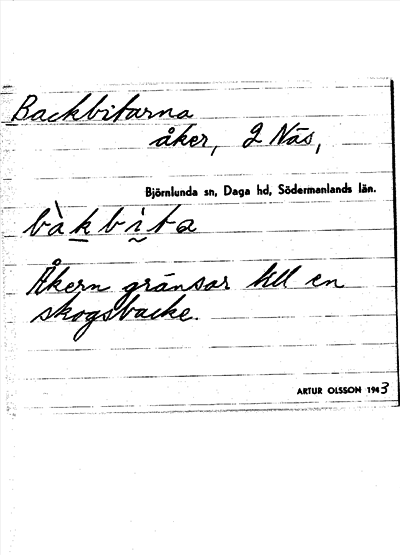 Backbitarna
åker, 2 Näs,
Björnlunda sn, Daga hd, Södermanlands län.
bàk̲bḭta
Åkern gränsar till en
skogsbacke.
ARTUR OLSSON 1943